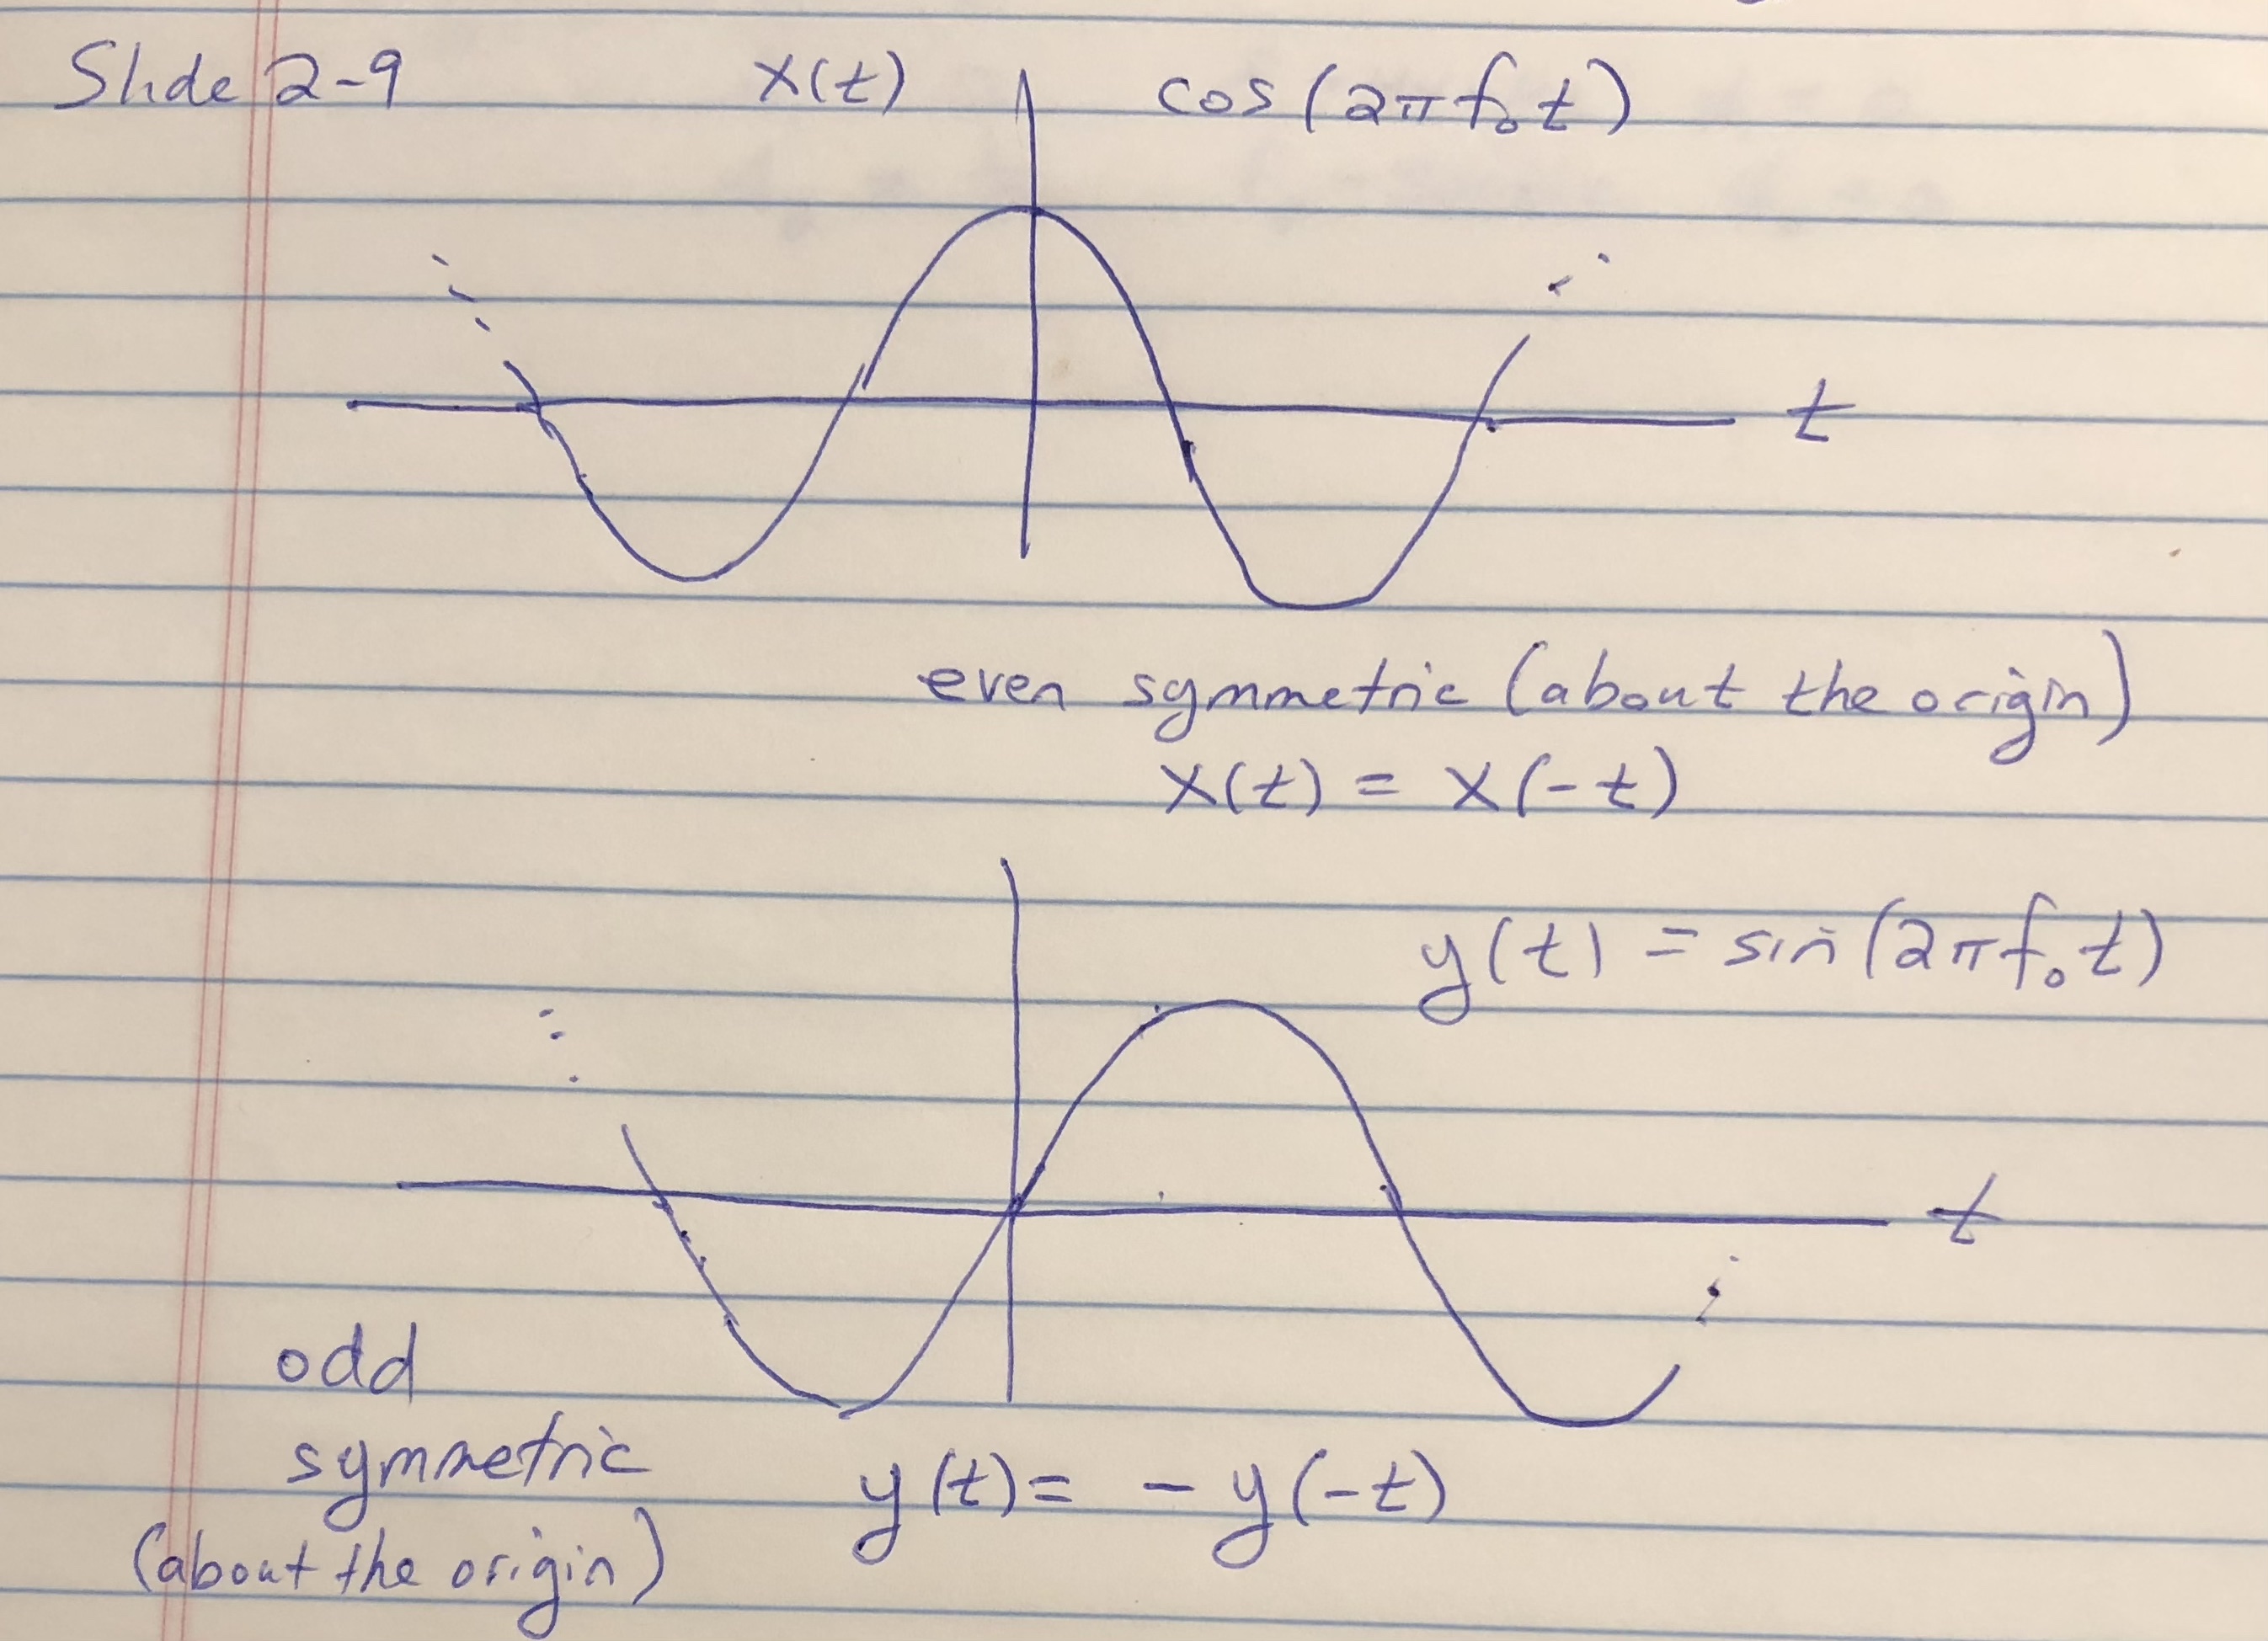 Slide 2-9 x(t) cos(2πf₀t)
t
even symmetric (about the origin)
x(t) = x(-t)
y(t) = sin(2πf₀t)
t
odd
symmetric
(about the origin)
y(t) = - y(-t)